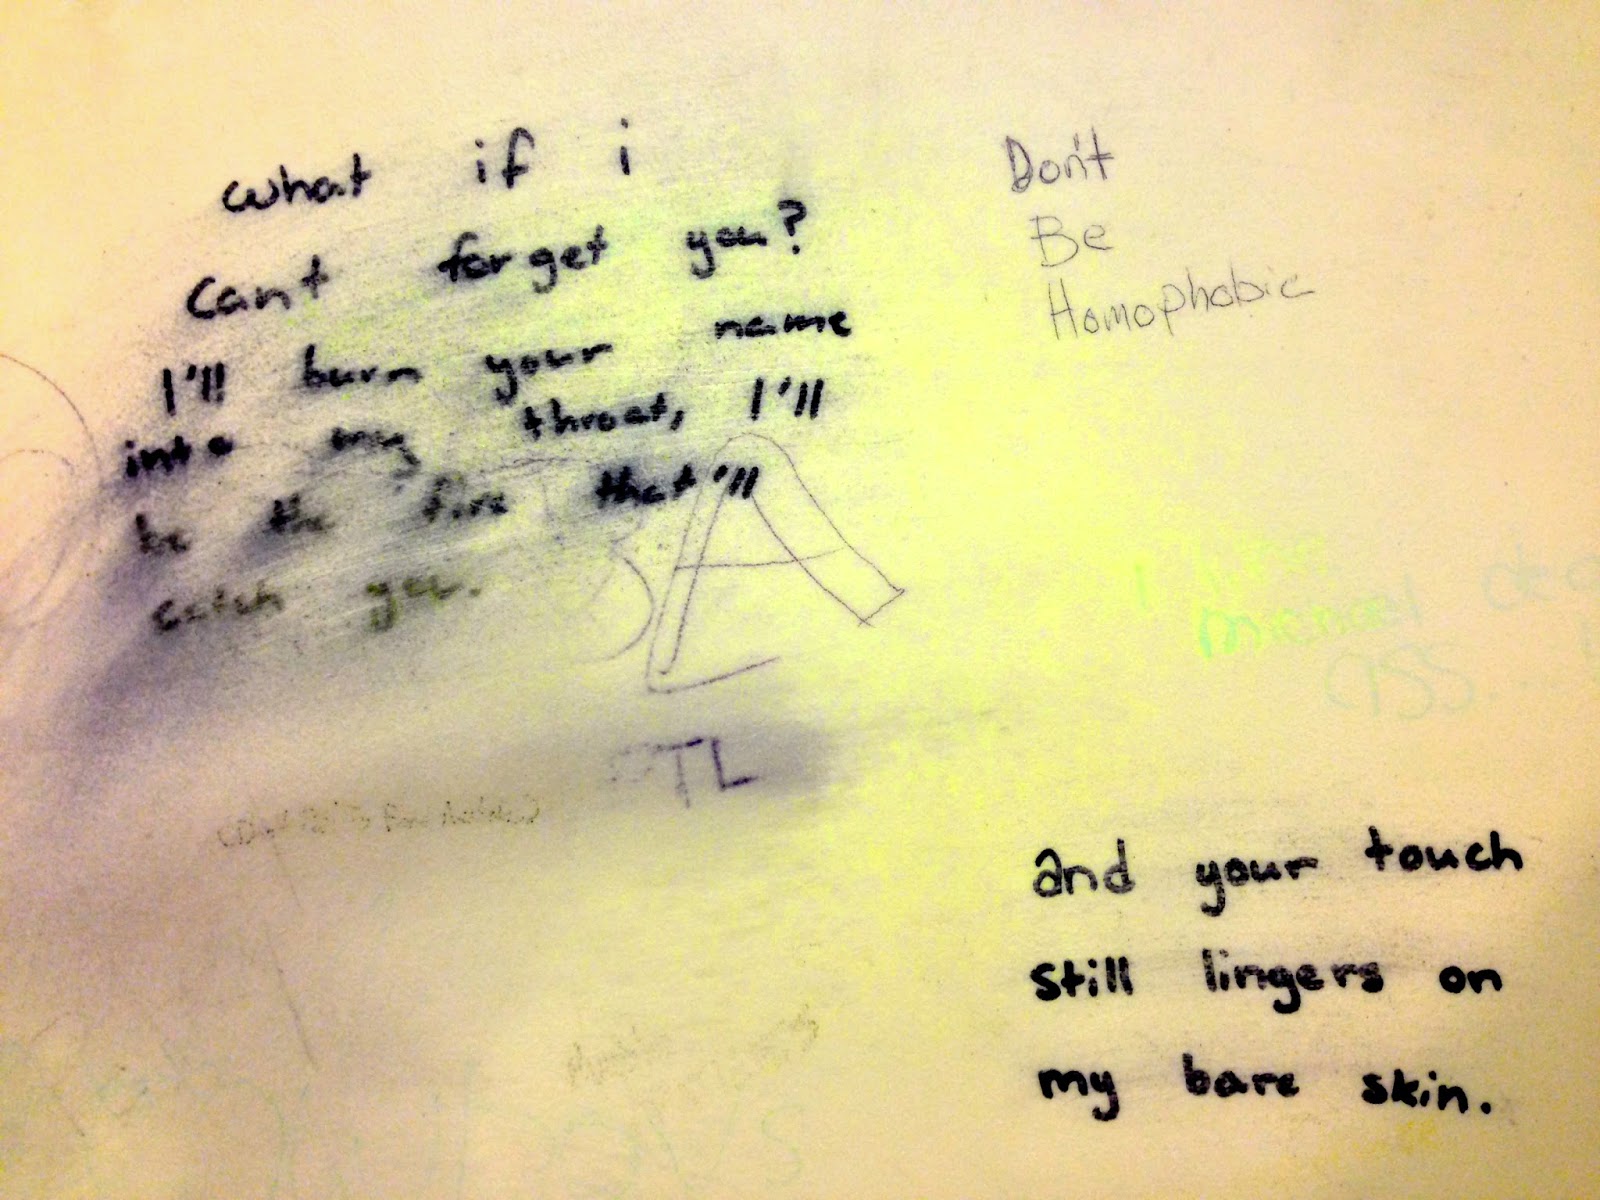 what if i
cant forget you?
I'll burn your name
into my throat, I'll
be the fire that'll
catch you.
Don't
Be
Homophobic
TL
I
ass
and your touch
still lingers on
my bare skin.